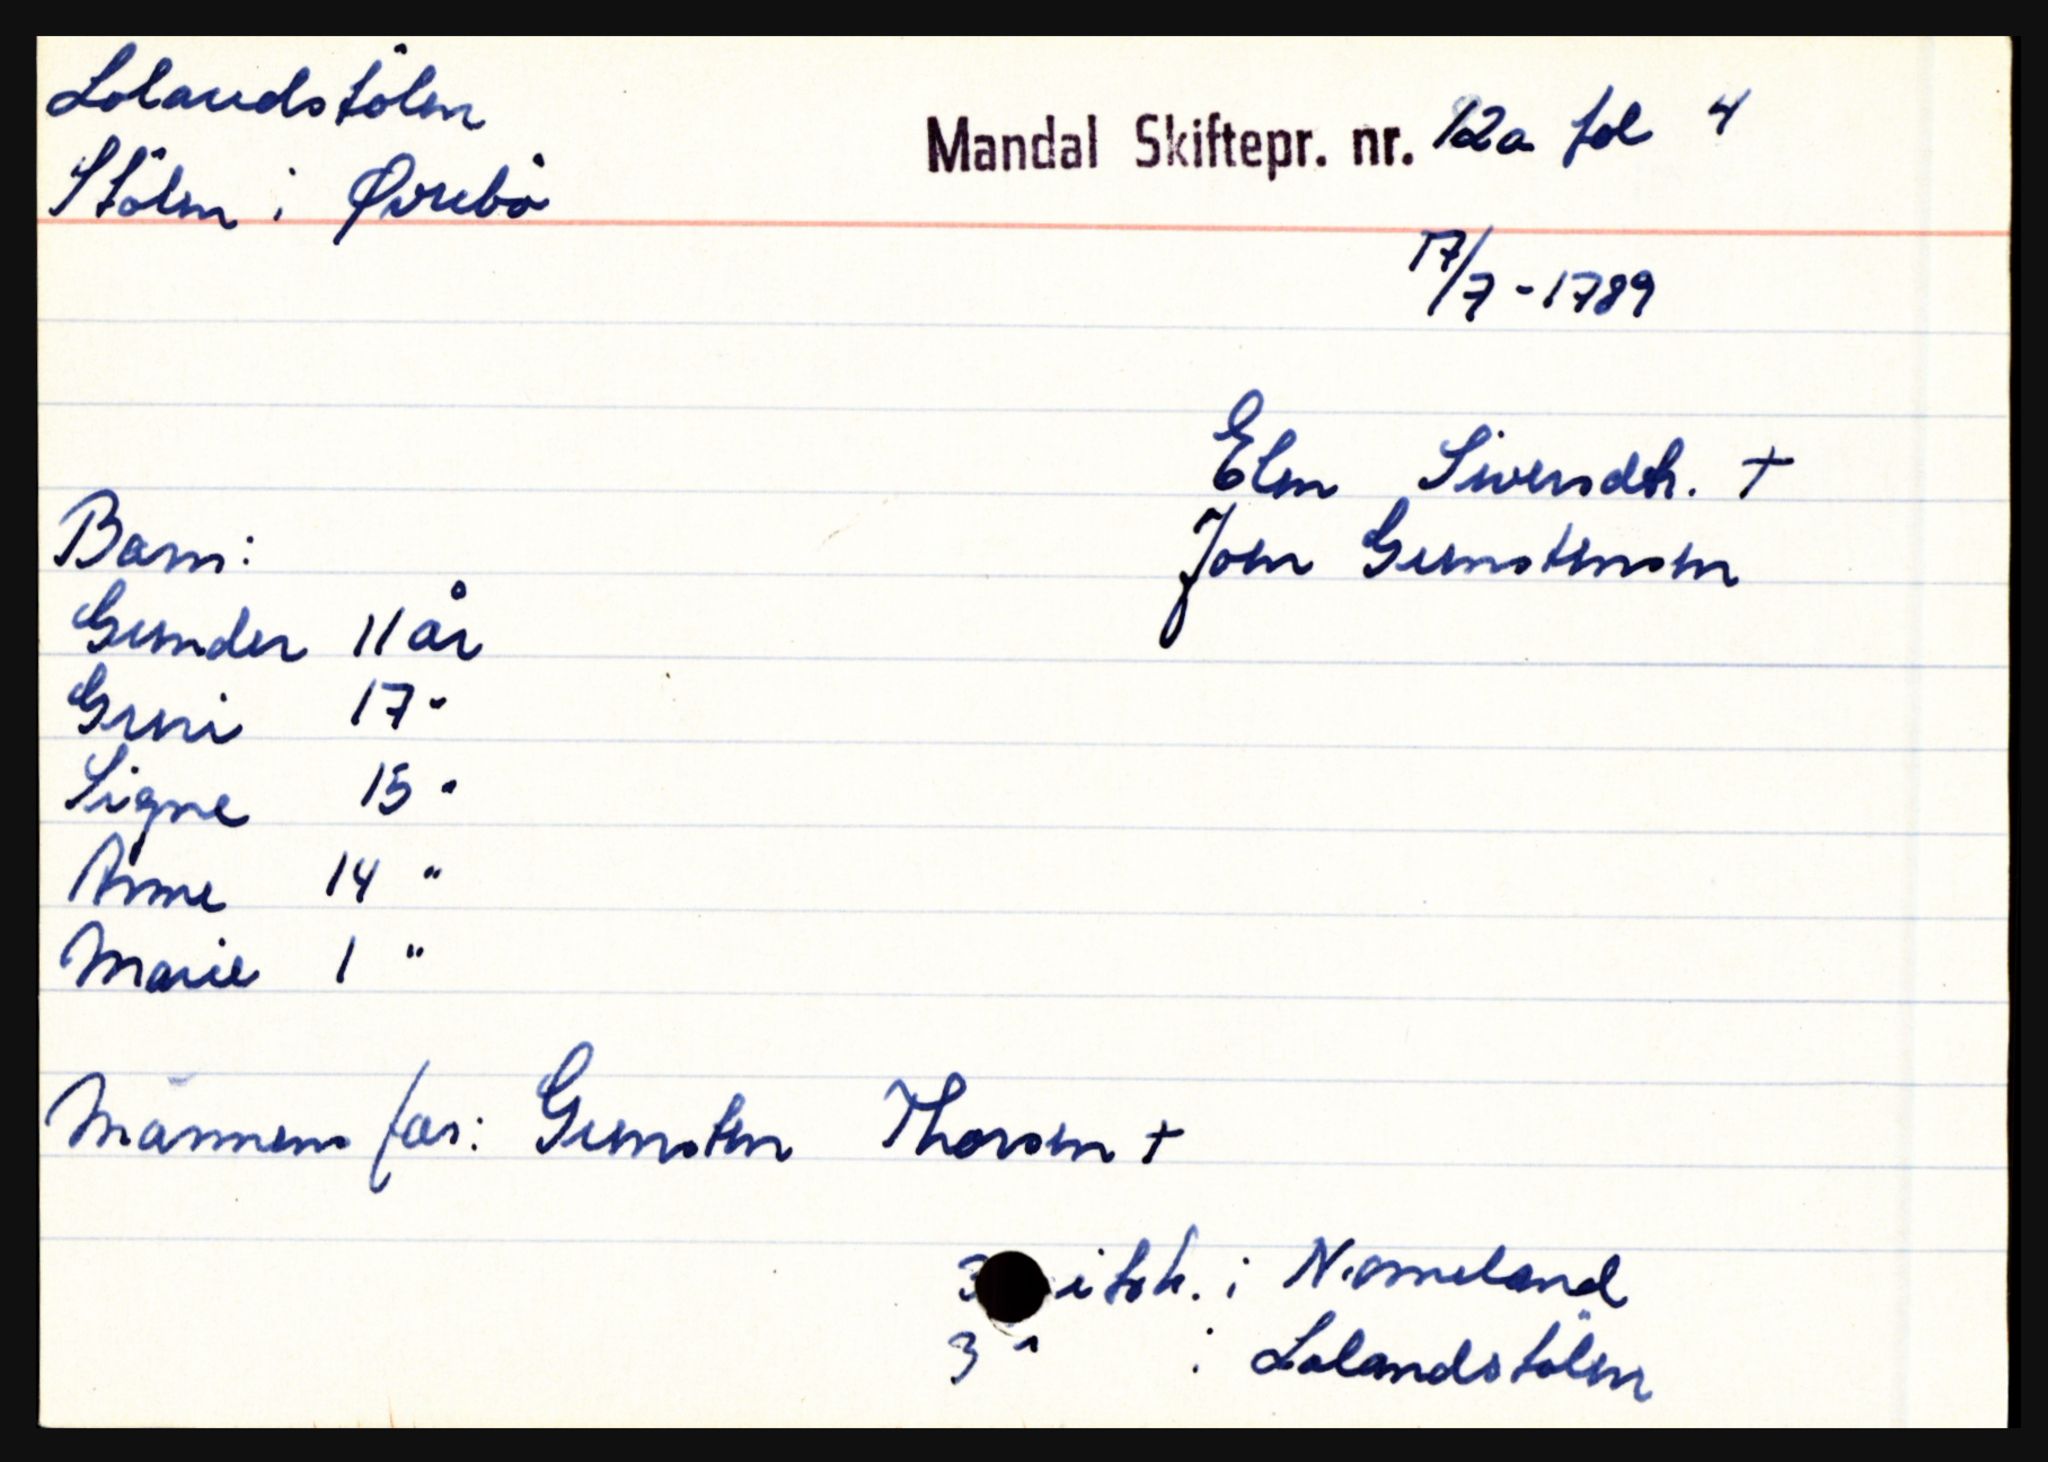 Lolandstölen
Stölen i Øvrebö
Mandal Skiftepr. nr. 12a fol 4
17/7 - 1789
Elen Siversdtr. +
Joen Gunstensen
Barn:
Gunder 11 år
Guri 17 "
Signe 15 "
Anne 14 "
Marie 1 "
Mannens far: Gunsten Thorsen +
3 i Nomeland
3 " i Lolandstölen